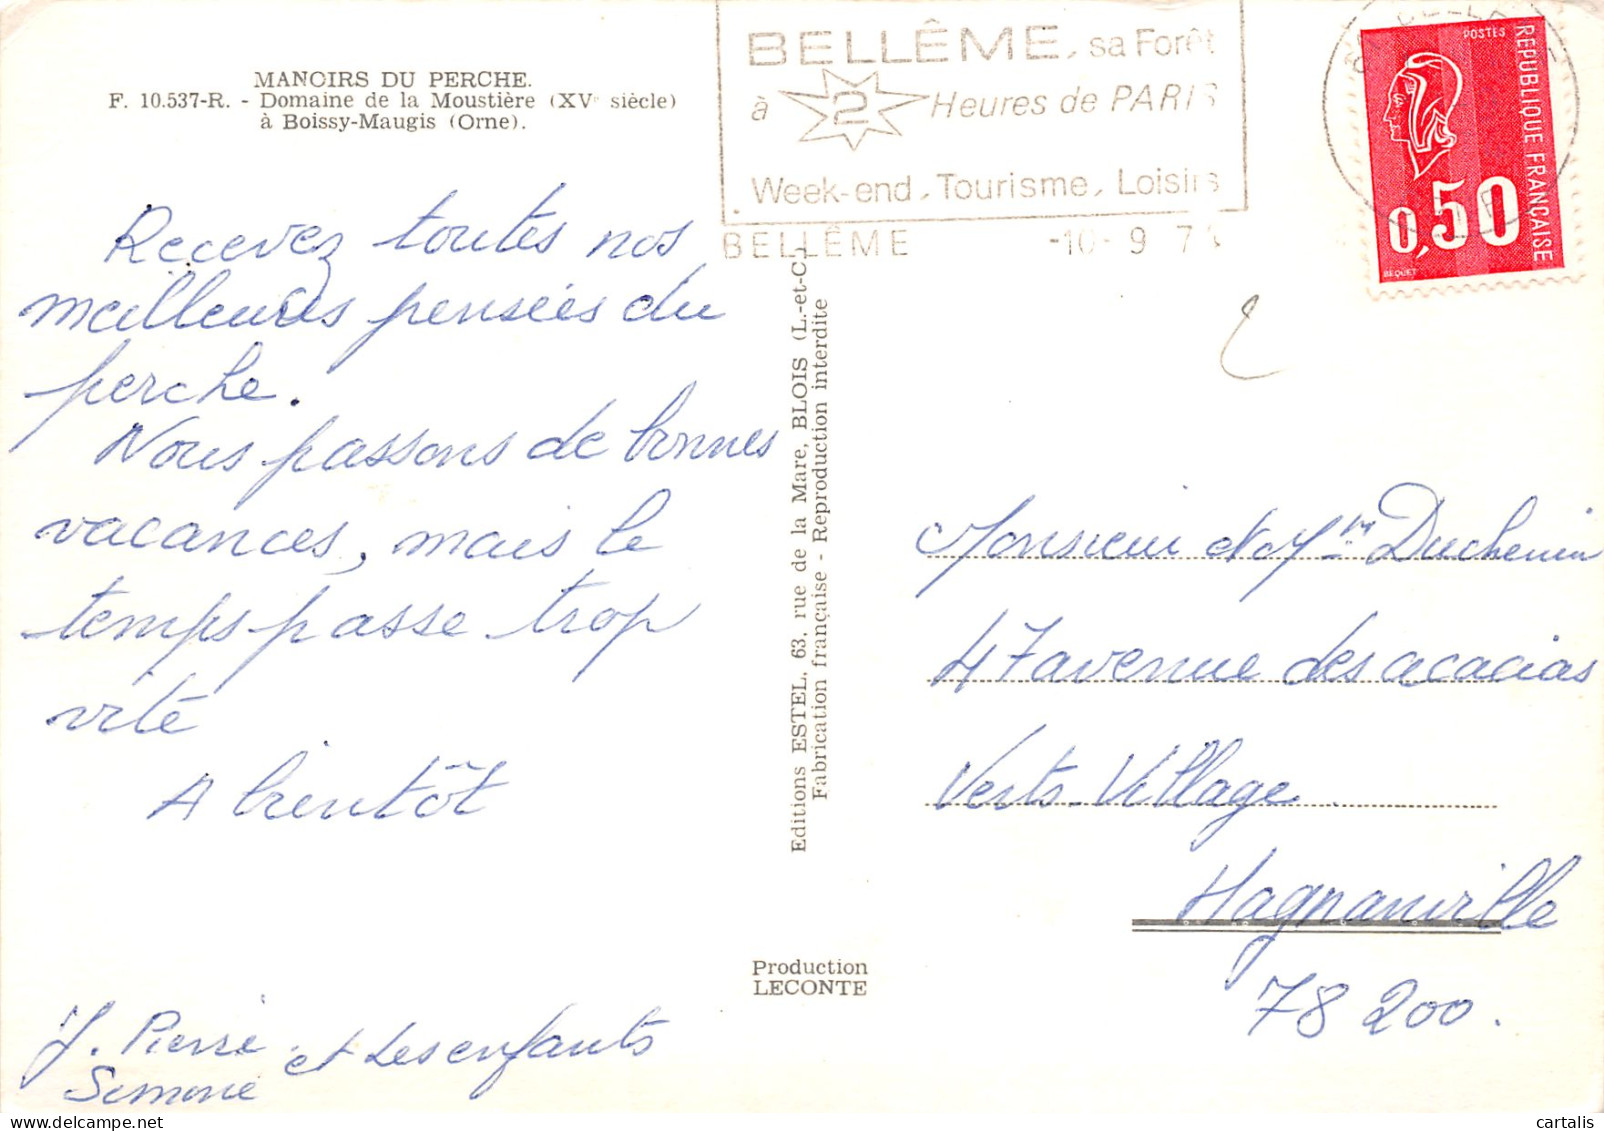 MANOIRS DU PERCHE.
F. 10.537-R. - Domaine de la Moustière (XVe siècle)
à Boissy-Maugis (Orne).
Recevez toutes nos
meilleures pensées du
perche.
Nous passons de bonnes
vacances, mais le
temps passe trop
vite
A bientôt
J. Pierre
Simone
et les enfants
Editions ESTEL, 63, rue de la Mare, BLOIS (L.-et-C.)
Fabrication française - Reproduction interdite
Production
LECONTE
BELLÊME, sa Forêt
à 2 Heures de PARIS
Week-end, Tourisme, Loisirs
BELLÊME -10- 9 7
POSTES
REPUBLIQUE FRANÇAISE
0,50
BEQUET
Monsieur et Mme Duchemin
47 avenue des acacias
Verts Village
Magnanville
78 200.
cartalis
cartalis.delcampe.net